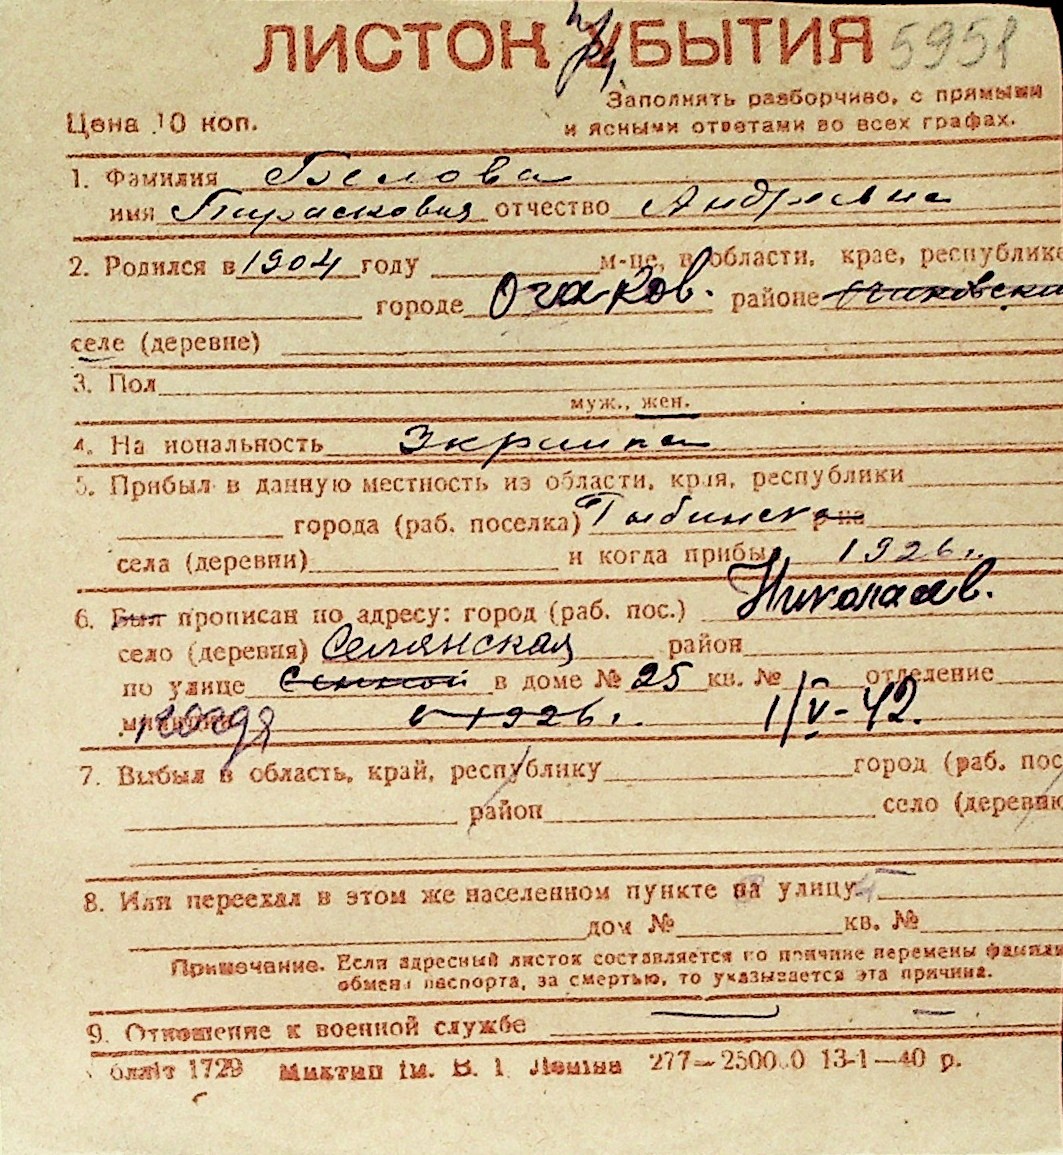 ЛИСТОК УБЫТИЯ 5951
Заполнять разборчиво, с прямыми
Цена 10 коп. и ясными ответами во всех графах.
1. Фамилия Белова
имя Парасковия отчество Андреевна
2. Родился в 1904 году м-це, в области, крае, республике
городе Очаков. районе Очаковски
селе (деревне)
3. Пол
муж., жен.
4. На иональность Украинка
5. Прибыл в данную местность из области, края, республики
города (раб. поселка) р-на
села (деревни) и когда прибы 1926 г.
6. Был прописан по адресу: город (раб. пос.) Николаев.
село (деревня) район
по улице Сенной в доме № 25 кв. № отделение
когда с 1926 г. 1/V-42.
7. Выбыл в область, край, республику город (раб. пос
район село (деревню
8. Или переехал в этом же населенном пункте на улицу
дом № кв. №
Примечание. Если адресный листок составляется по причине перемены фамили
обмена паспорта, за смертью, то указывается эта причина.
9. Отношение к военной службе
блліт 1729 Миктип ім. В. І. Леніна 277—2500 0 13-1—40 р.